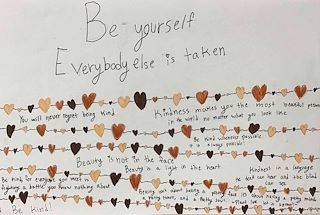 Be yourself
Everybody else is taken
You will never regret being kind
Kindness makes you the most beautiful person
in the world no matter what you look like
Be kind whenever possible
it is always possible
Beauty is not in the face
Beauty is a light in the heart
Be kind for everyone you meet is
fighting a battle you know nothing about
Kindness is a language
the deaf can hear and the blind
can see
Beauty isn't about having a pretty face it's about having a
pretty mind, and a pretty soul
Be kind!